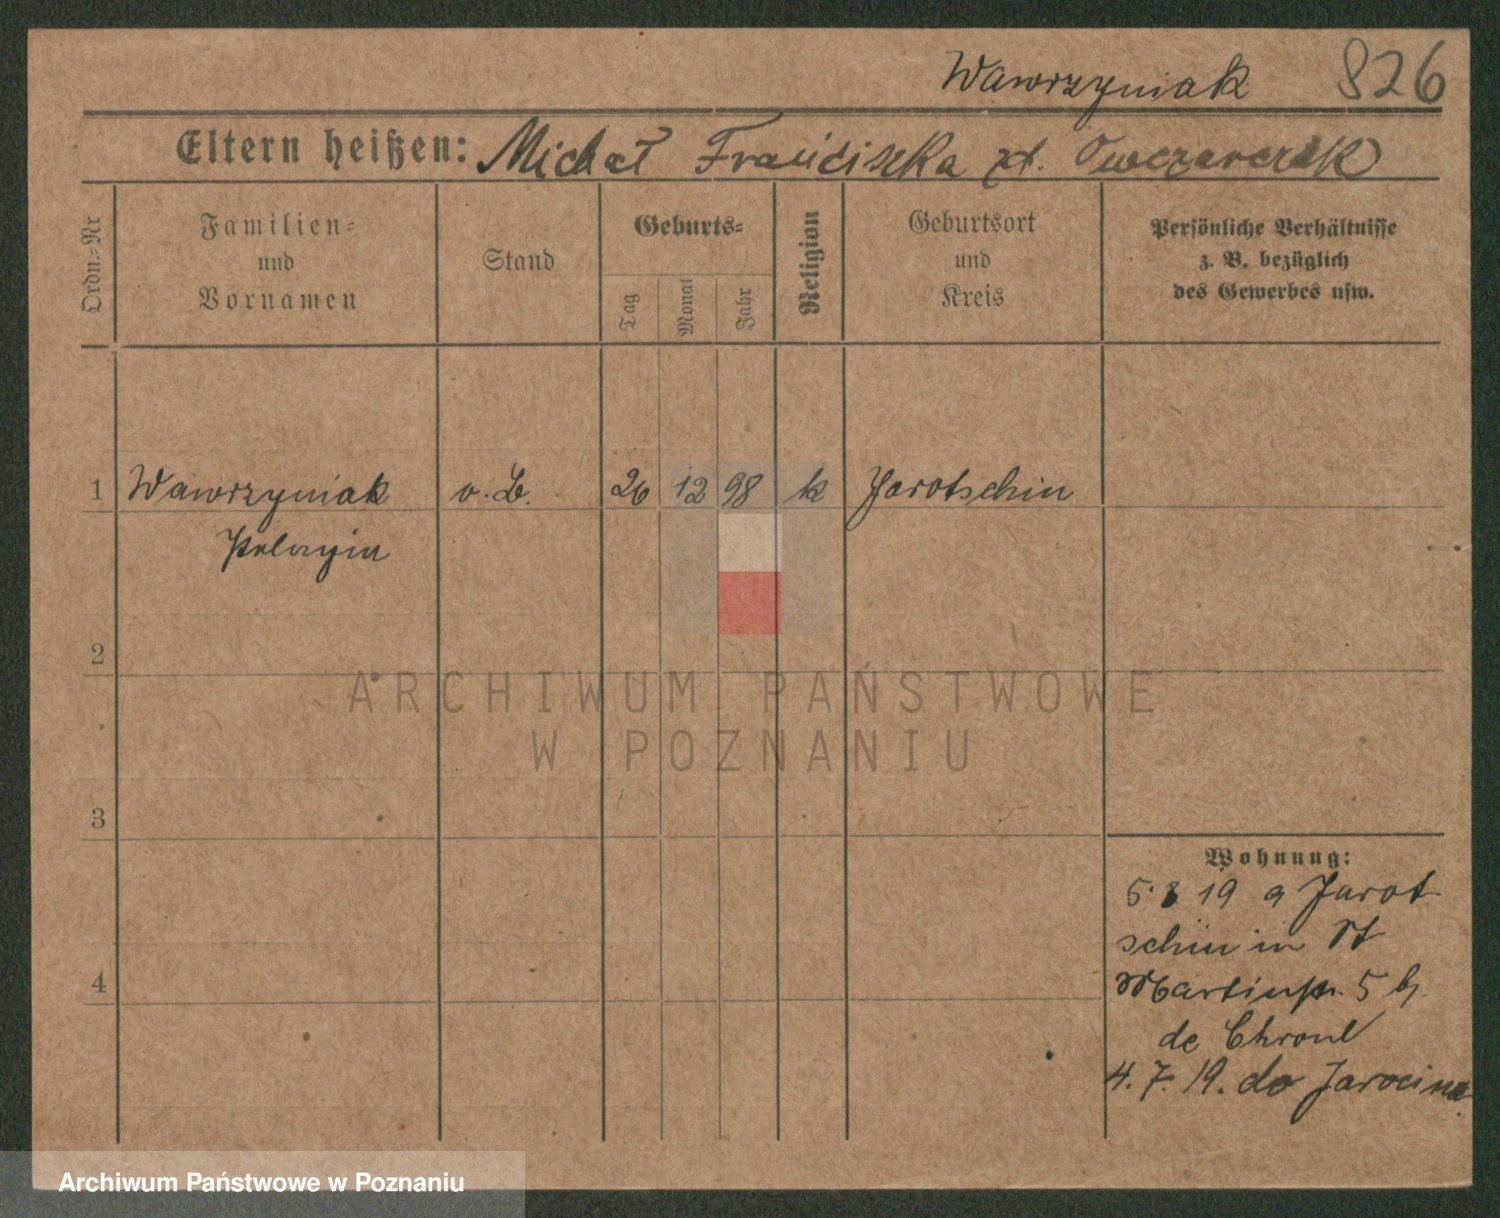 Wawrzyniak 826
Eltern heißen: Michał Franciszka zd. Owczarczak
Ordn.-Nr
Familien-
und
Vornamen
Stand
Geburts-
Tag
Monat
Jahr
Religion
Geburtsort
und
Kreis
Persönliche Verhältnisse
z. B. bezüglich
des Gewerbes usw.
1 Wawrzyniak o. B. 26 12 98 k Jarotschin
Pelagia
2
ARCHIWUM PAŃSTWOWE
W POZNANIU
3
4
Wohnung:
5. 3 19 a Jarot
schin in St
Martinstr. 5 bj.
de
4. 7. 19. do Jarocina
Archiwum Państwowe w Poznaniu